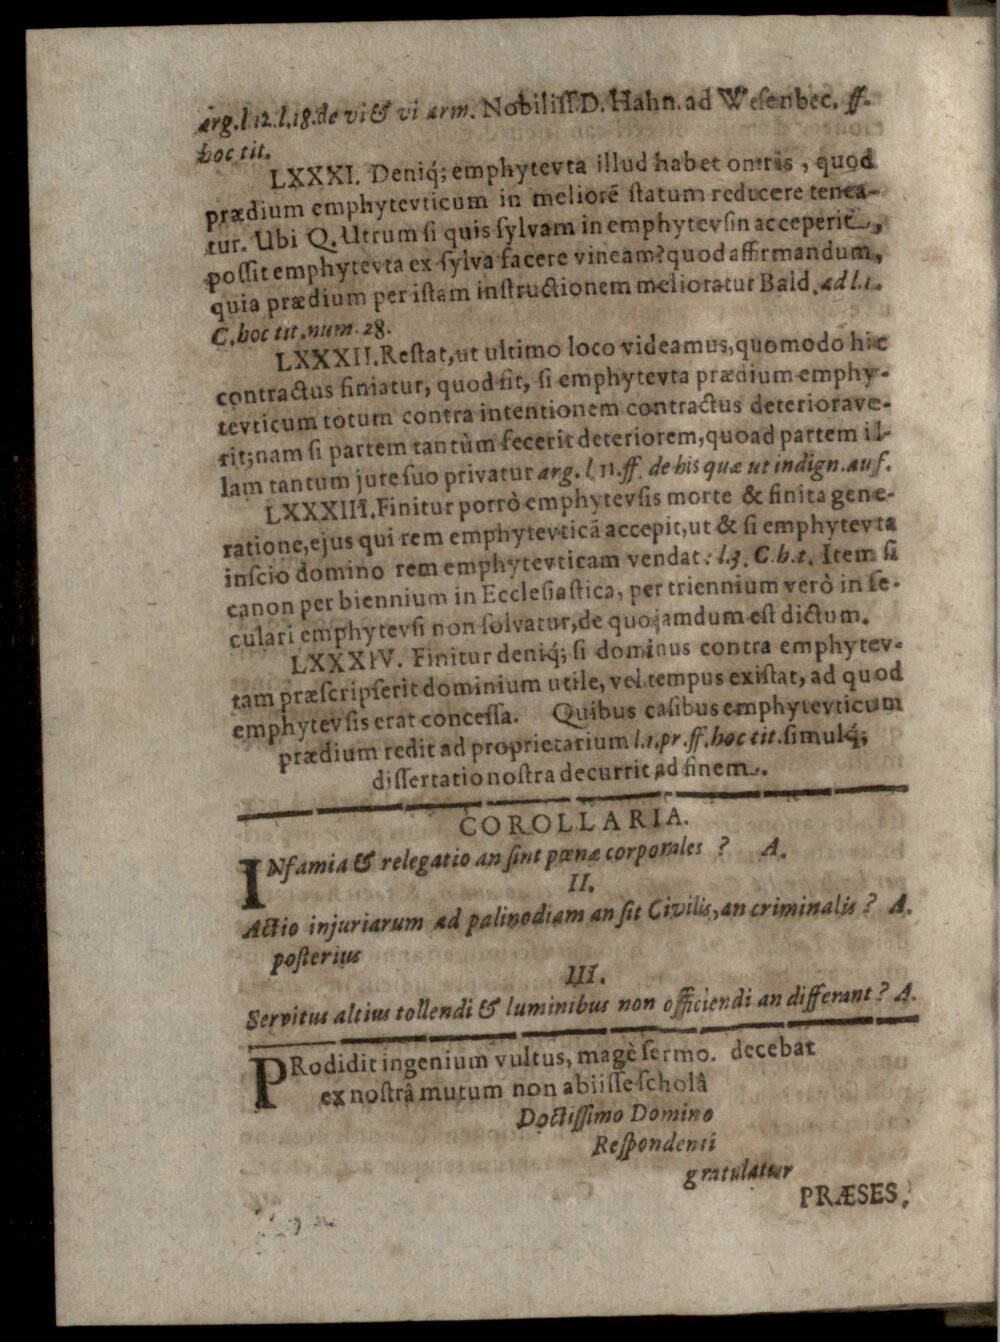 arg. l. 12. l. 18. de vi & vi arm. Nobiliſſ. D. Hahn. ad Weſenbec. ff.
hoc tit.
LXXXI. Deniq́; emphytevta illud habet oneris, quod
prædium emphytevticum in meliorē ſtatum reducere tenea-
tur. Ubi Q. Utrum ſi quis ſylvam in emphytevſin acceperit,
poſſit emphytevta ex ſylva facere vineam? quod affirmandum,
quia prædium per iſtam inſtructionem melioratur Bald. ad l. 1.
C. hoc tit. num. 28.
LXXXII. Reſtat, ut ultimo loco videamus, quomodo hic
contractus finiatur, quod fit, ſi emphytevta prædium emphy-
tevticum totum contra intentionem contractus deteriorave-
rit; nam ſi partem tantùm fecerit deteriorem, quoad partem il-
lam tantum jure ſuo privatur arg. l. 11. ff. de his quæ ut indign. auf.
LXXXIII. Finitur porrò emphytevſis morte & finita gene-
ratione, ejus qui rem emphytevticā accepit, ut & ſi emphytevta
inſcio domino rem emphytevticam vendat: l. 3. C. h. t. Item ſi
canon per biennium in Eccleſiaſtica, per triennium verò in ſe-
culari emphytevſi non ſolvatur, de quo jamdum eſt dictum.
LXXXIV. Finitur deniq́; ſi dominus contra emphytev-
tam præſcripſerit dominium utile, vel tempus exiſtat, ad quod
emphytevſis erat conceſſa. Quibus caſibus emphytevticum
prædium redit ad proprietarium l. 1. pr. ff. hoc tit. ſimulq́;
diſſertatio noſtra decurrit ad finem.
COROLLARIA.
INfamia & relegatio an ſint pœnæ corporales ? A.
II.
Actio injuriarum ad palinodiam an ſit Civilis, an criminalis ? A.
poſterius
III.
Servitus altius tollendi & luminibus non officiendi an differant ? A.
PRodidit ingenium vultus, magè ſermo. decebat
ex noſtrâ mutum non abiiſſe ſcholâ
Doctiſſimo Domino
Reſpondenti
gratulatur
PRÆSES.